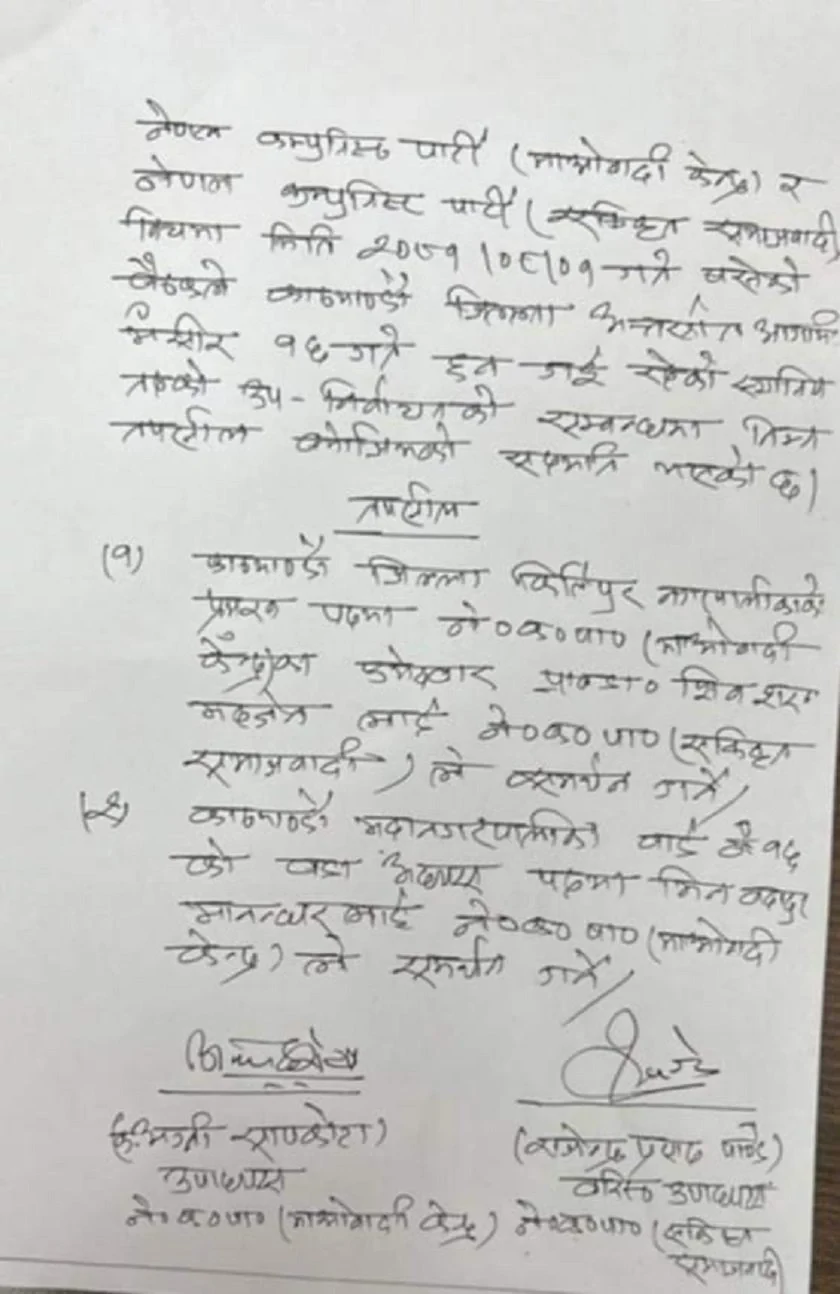 नेपाल कम्युनिस्ट पार्टी (माओवादी केन्द्र) र
नेपाल कम्युनिस्ट पार्टी (एकिकृत समाजवादी)
बिचमा मिति २०८१/०८/०१ गते बसेको
बैठकले काठमाण्डौ जिल्ला अन्तर्गत आगामी
मंसीर १६ गते हुन गई रहेको स्थानिय
तहको उप-निर्वाचनको सम्बन्धमा निम्न
तपशील बमोजिमको सहमति भएको छ।
तपशील
(१) काठमाण्डौ जिल्ला किर्तिपुर नगरपालीकाको
प्रमुख पदमा ने०क०पा० (माओवादी
केन्द्र)का उमेदवार प्रा०डा० शिव शरण
महर्जन लाई ने०क०पा० (एकिकृत
समाजवादी) ले समर्थन गर्ने/
(२) काठमाण्डौ महानगरपालिका वार्ड नं १६
को वडा अध्यक्ष पदमा बहादुर
मानन्धर लाई ने०क०पा० (माओवादी
केन्द्र) ले समर्थन गर्ने/
सापकोटा)
(राजेन्द्र प्रसाद पाण्डे)
उपाध्यक्ष
वरिष्ठ उपाध्यक्ष
ने०क०पा० (माओवादी केन्द्र)
ने०क०पा० (एकिकृत
समाजवादी